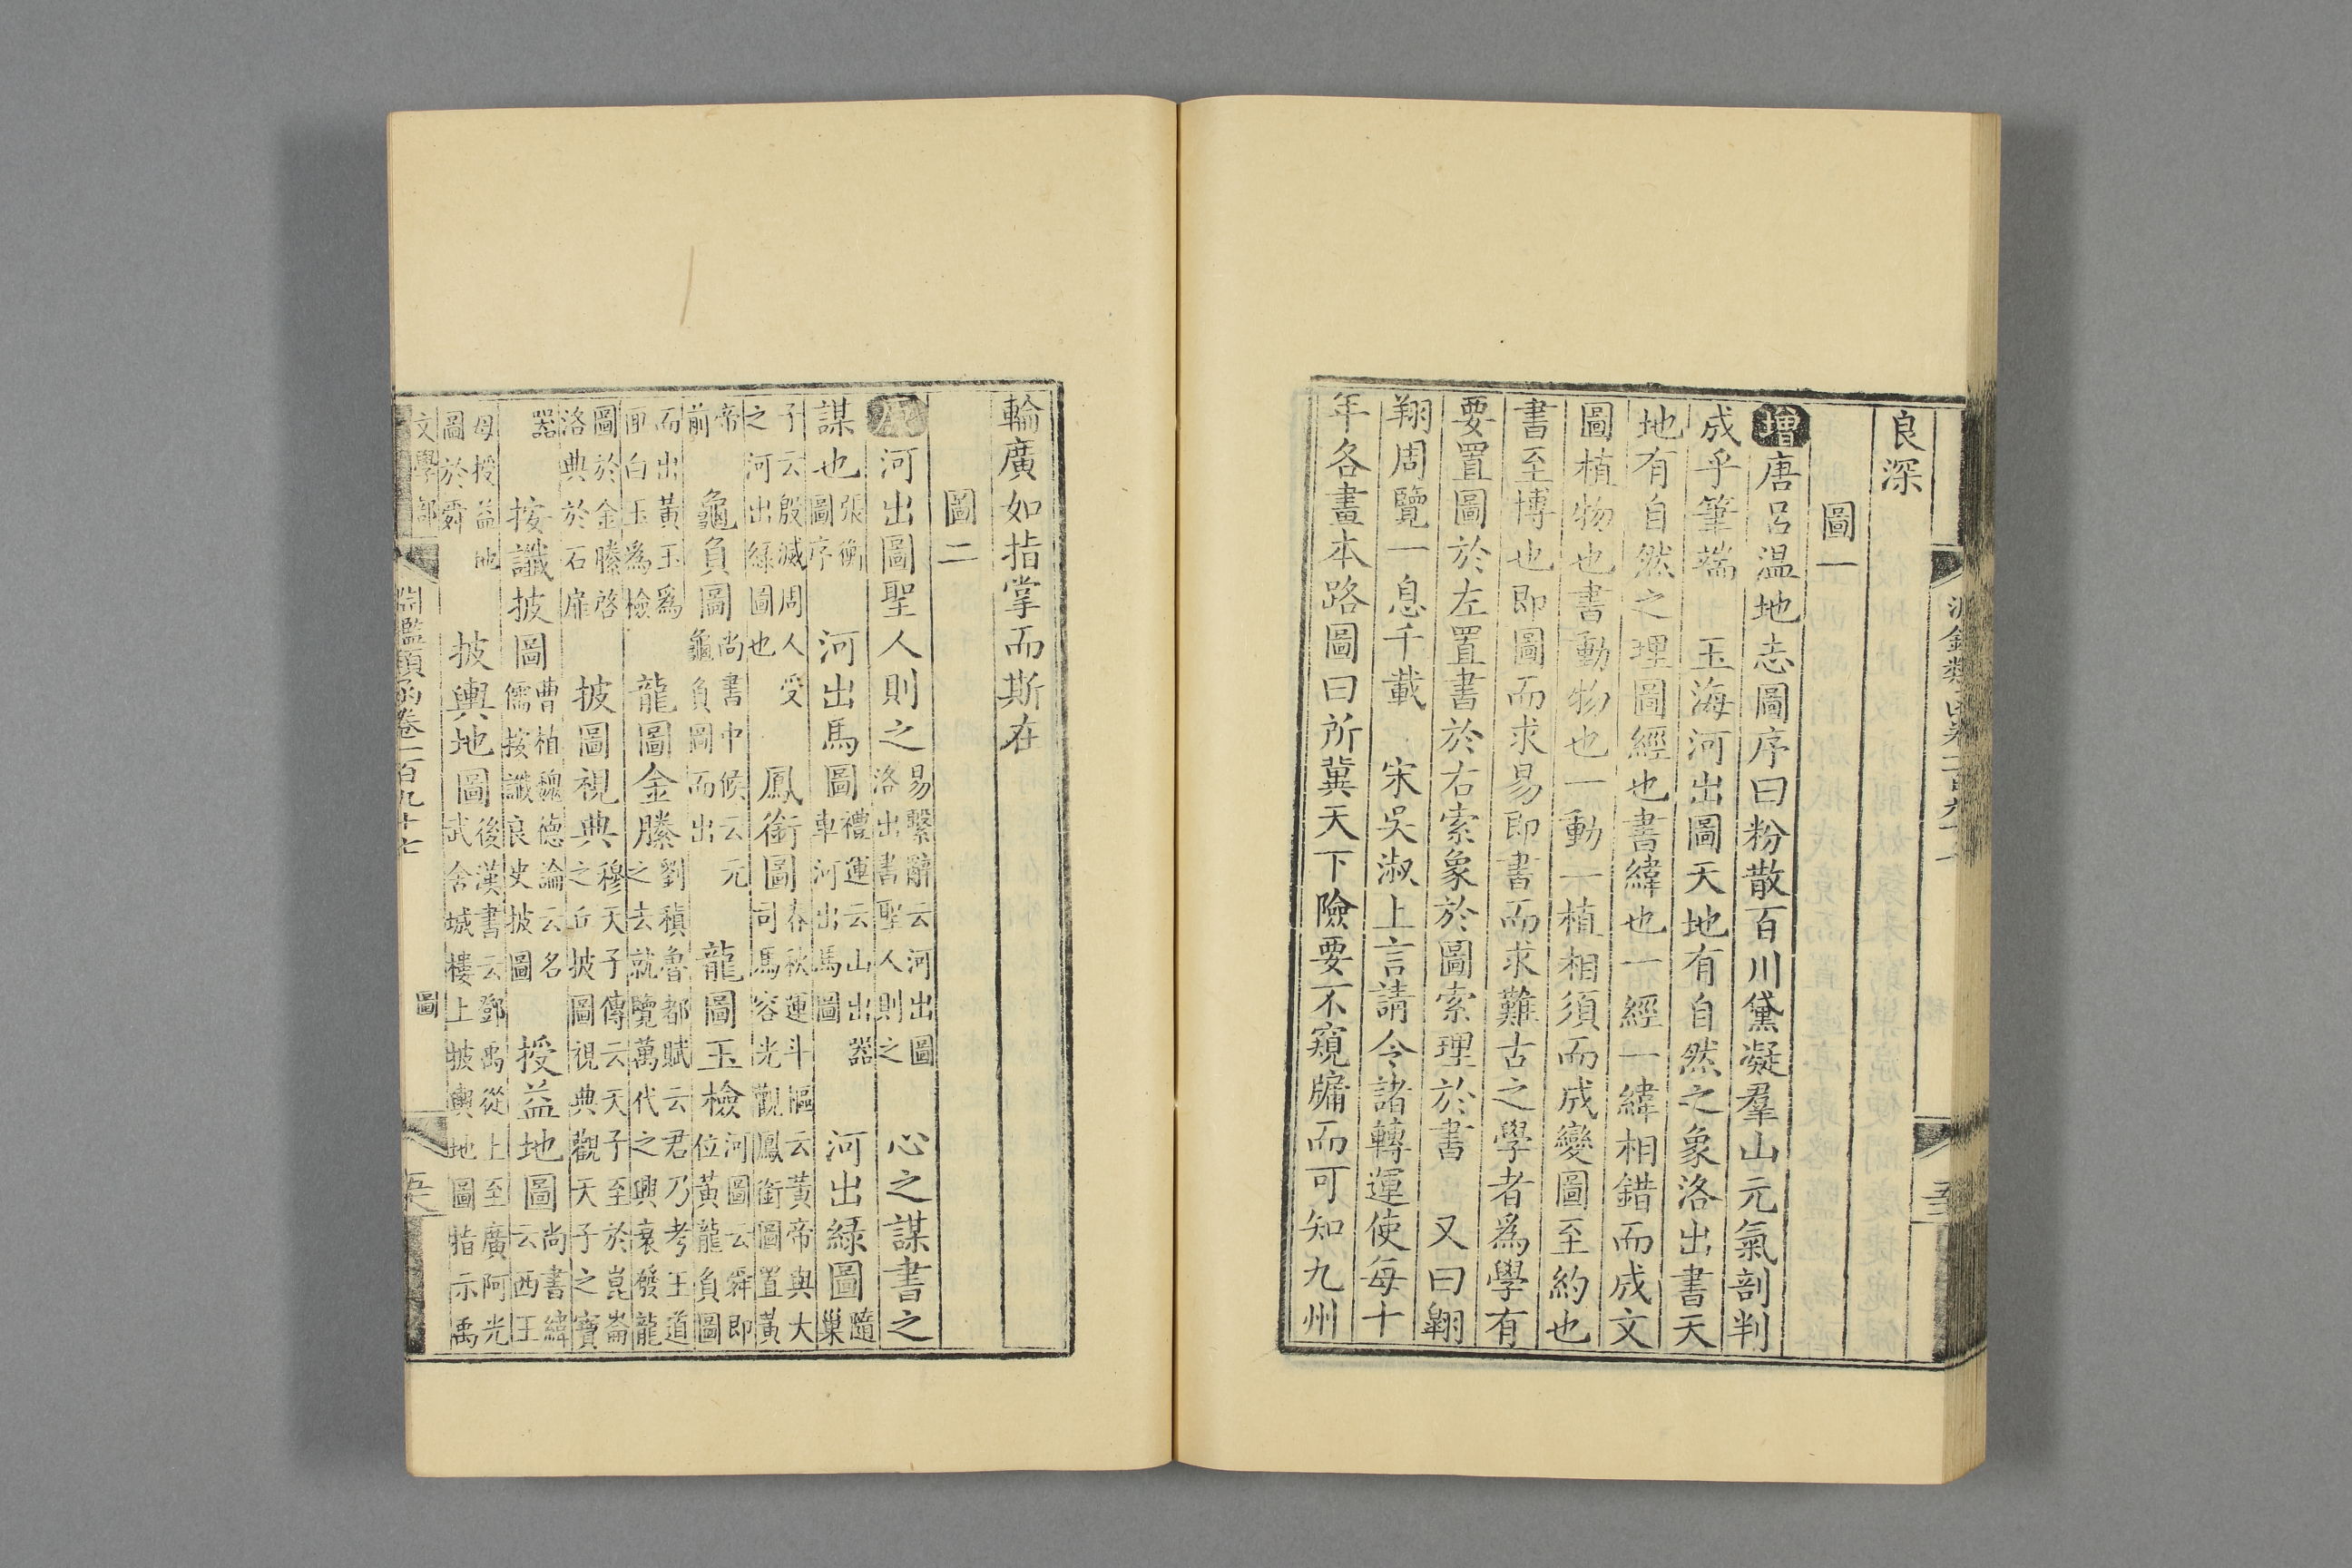 良深
圖一
增唐呂温地志圖序曰粉散百川黛凝羣山元氣剖判
成乎筆端　玉海河出圖天地有自然之象洛出書天
地有自然之理圖經也書緯也一經一緯相錯而成文
圖植物也書動物也一動一植相須而成變圖至約也
書至博也即圖而求易即書而求難古之學者為學有
要置圖於左置書於右索象於圖索理於書　又曰翺
翔周覽一息千載　宋吳淑上言請令諸轉運使每十
年各畫本路圖曰所冀天下險要不窺牖而可知九州
輪廣如指掌而斯在
圖二
河出圖聖人則之易繫辭云河出圖洛出書聖人則之　心之謀書之
謀也張衡圖序　河出馬圖禮運云山出器車河出馬圖　河出綠圖隨巢
子云殷滅周人受之河出綠圖也　鳳銜圖春秋運斗樞云黃帝與大司馬容光觀鳳銜圖置黃
帝前　龜負圖尚書中候云元龜負圖而出　龍圖玉檢河圖云舜即位黃龍負圖
而出黃玉為匣白玉為檢　龍圖金縢劉稹魯都賦云君乃考王道之去就覽萬代之興衰發龍
圖於金縢啓洛典於石扉　披圖視典穆天子傳云天子至於崑崙之丘披圖視典觀天子之寶
器　按讖披圖曹植魏德論云名儒按讖良史披圖　授益地圖尚書緯云西王
母授益地圖於舜　披輿地圖後漢書云鄧禹從上至廣阿光武舍城樓上披輿地圖指示禹
文學部　淵鑑類函卷一百九十七　圖　五